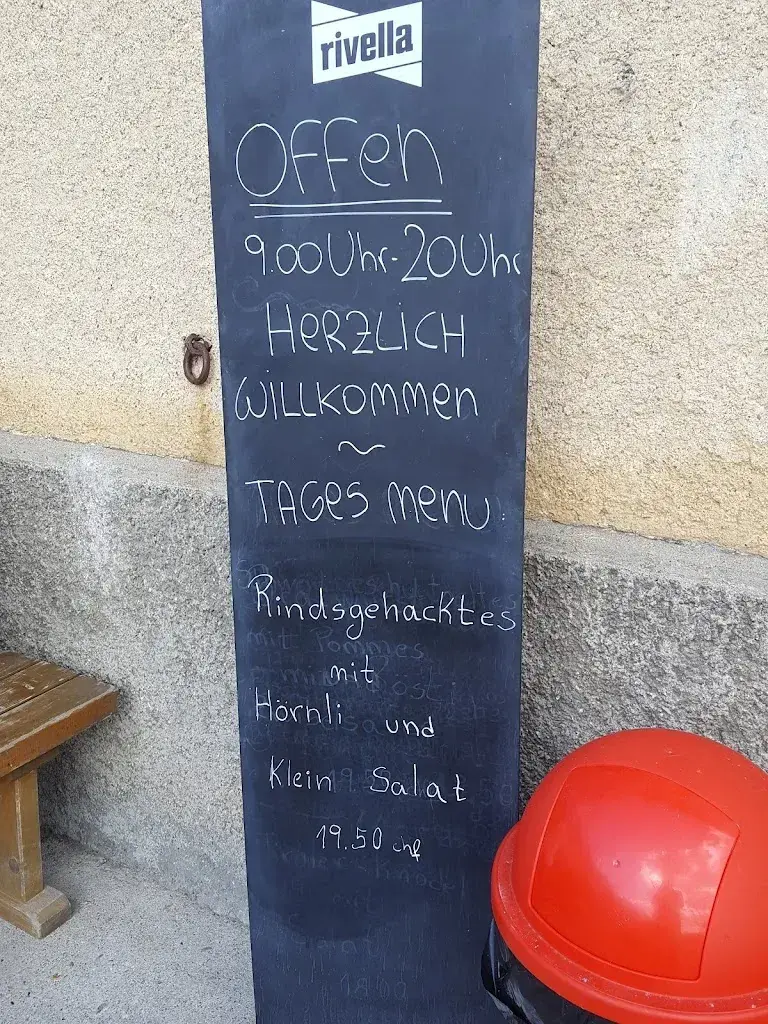 rivella
OFFen
9.00Uhr-20Uhr
HeRZLiCH
WiLLKOMMen
~
TAGeS Menu:
Rindsgehacktes
mit Pommes
mit
Hörnli und
Klein Salat
19.50 chf